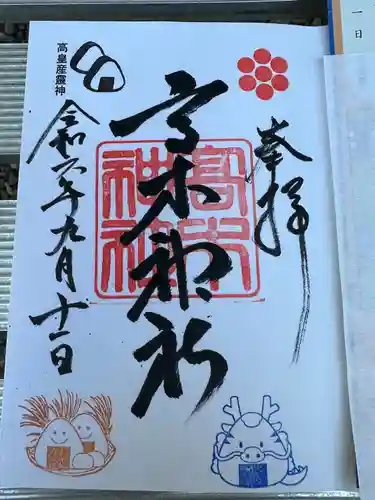 奉拝
高木神社
高木神社
高皇産靈神
令和六年九月十一日
一日